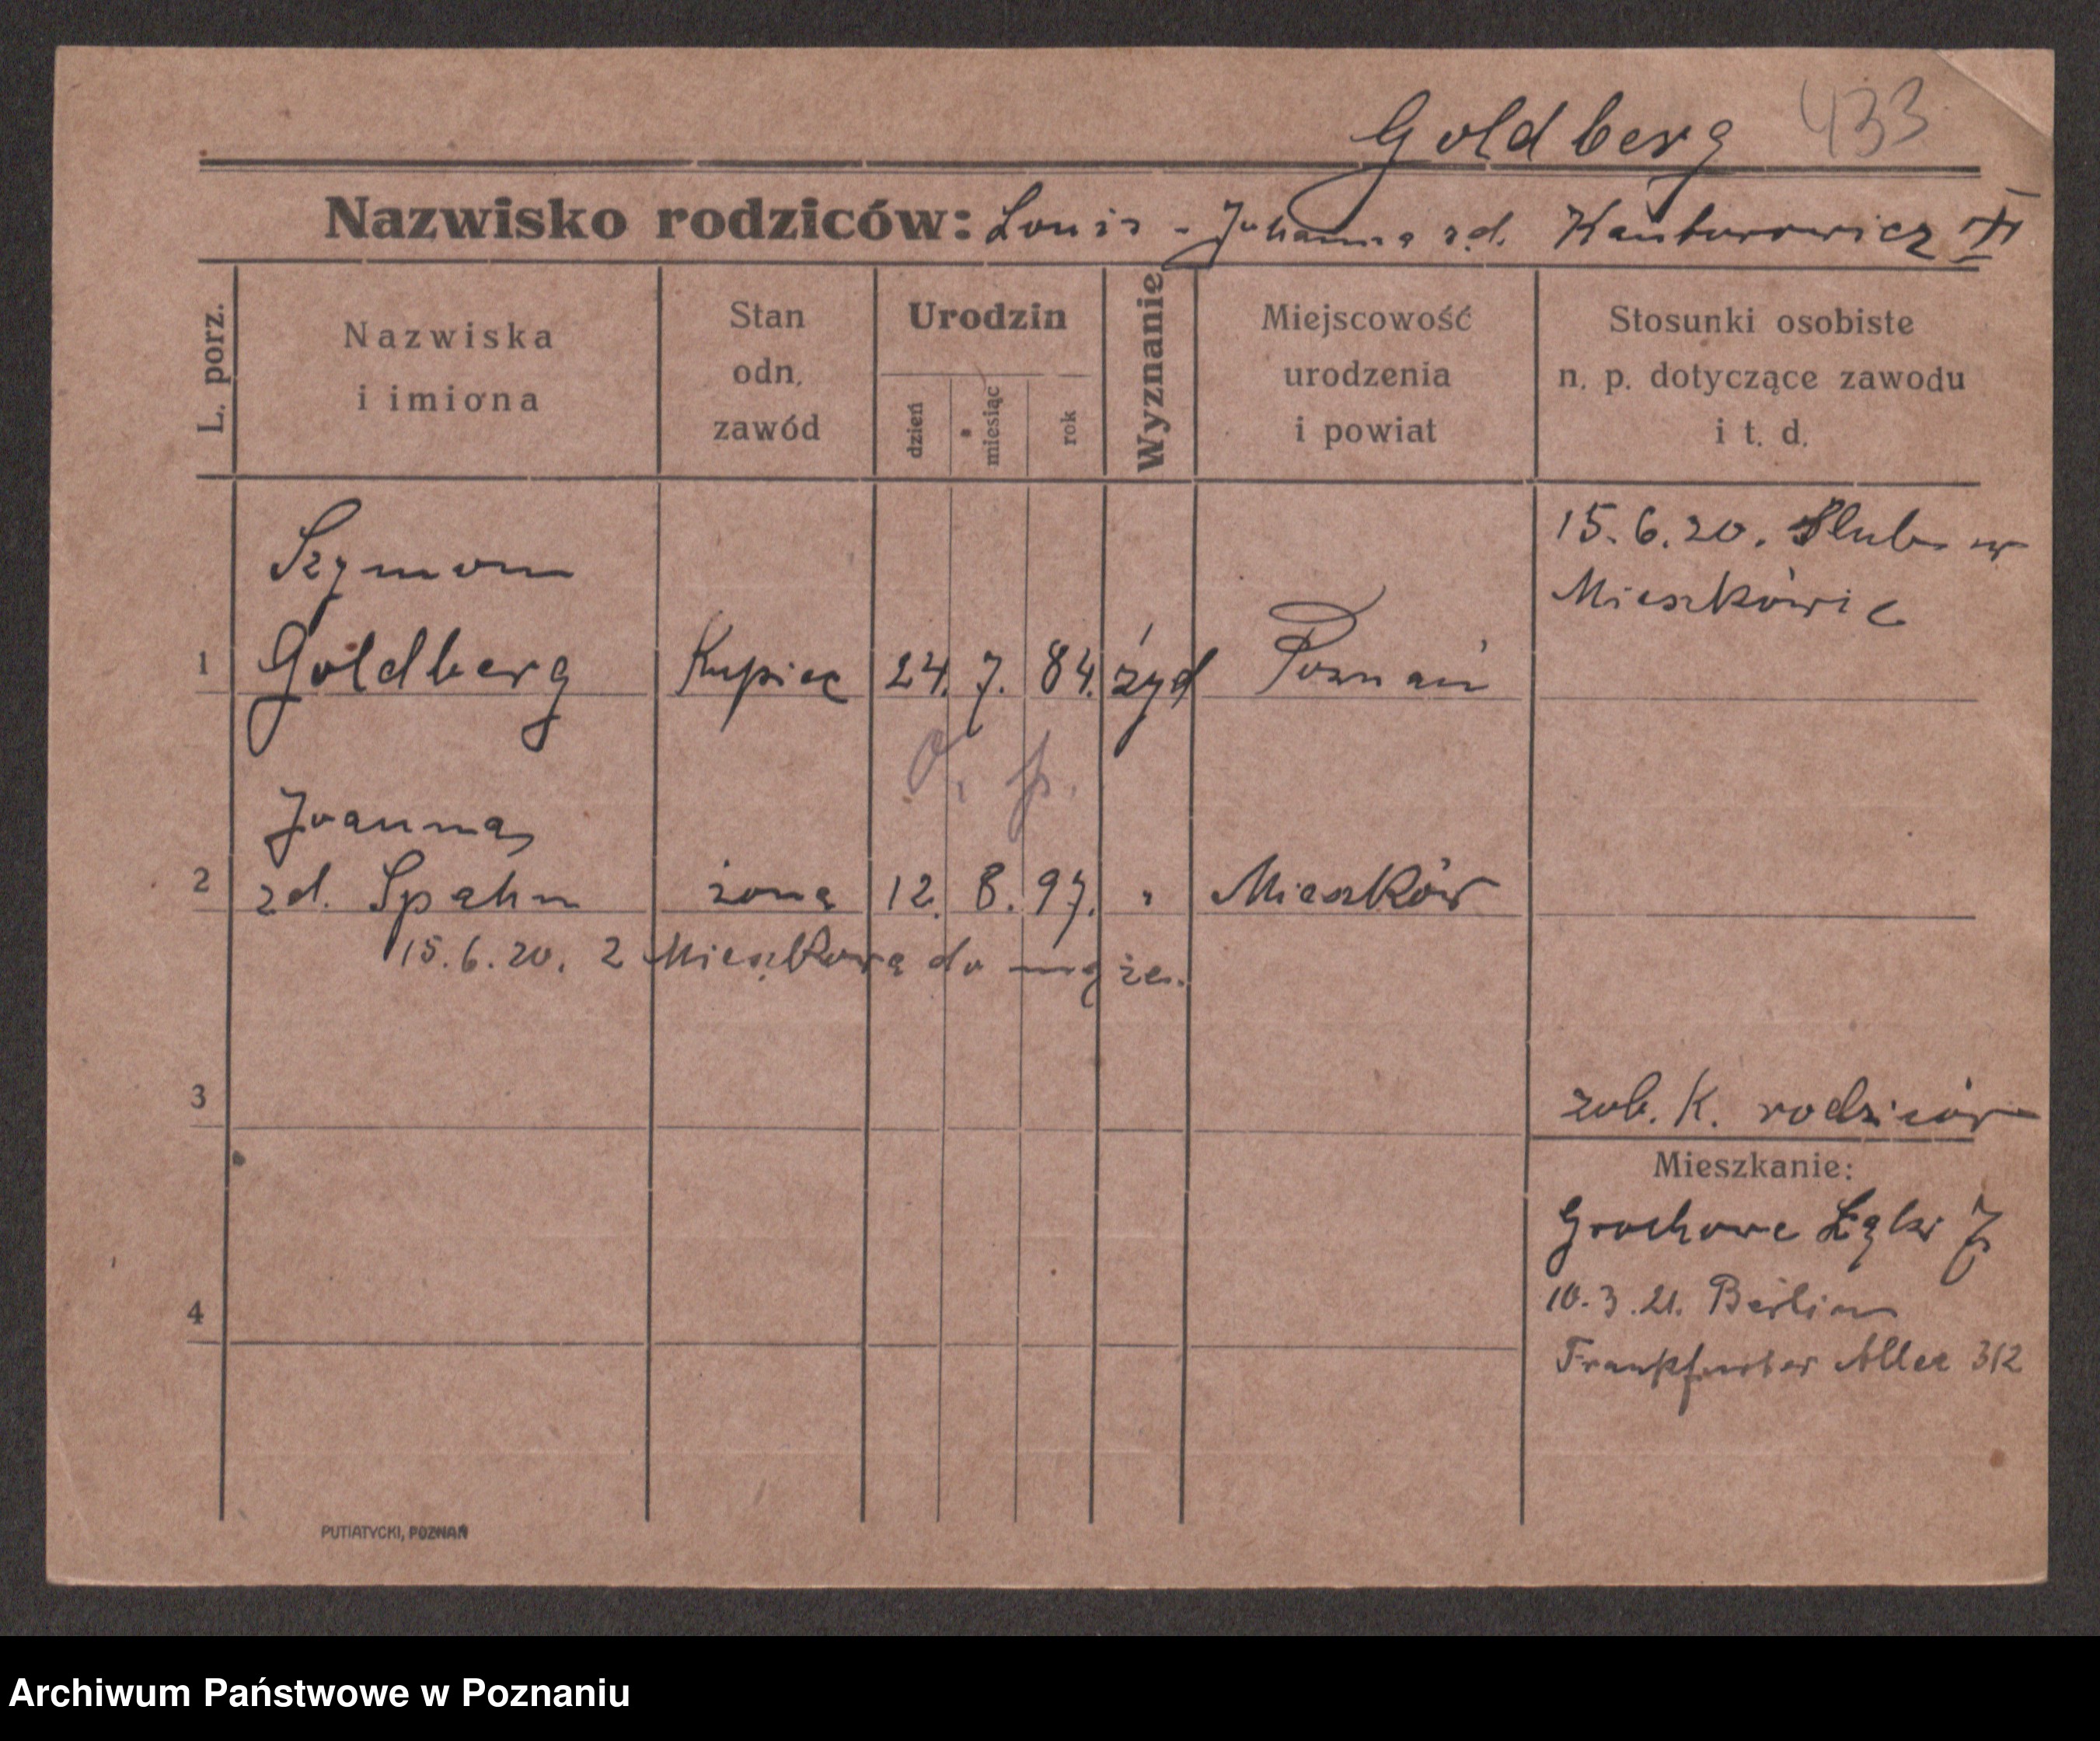 Goldberg 433
Nazwisko rodziców: Louis - Johanna zd. Kantorowicz
L. porz.
Nazwiska
i imiona
Stan
odn.
zawód
Urodzin
dzień
miesiąc
rok
Wyznanie
Miejscowość
urodzenia
i powiat
Stosunki osobiste
n. p. dotyczące zawodu
i t. d.
15.6.20. Ślub w
Mieszkowie
Szymon
1 Goldberg Kupiec 24. 7. 84. żyd Poznań
Joanna
2 zd. Spahn żona 12. 8. 97. " Mieszków
15.6.20. z Mieszkowa do męża.
3
zob. K. rodziców
Mieszkanie:
Grochowe Łąki 7
10.3.21. Berlin
4
Frankfurter Allee 312
PUTIATYCKI, POZNAŃ
Archiwum Państwowe w Poznaniu